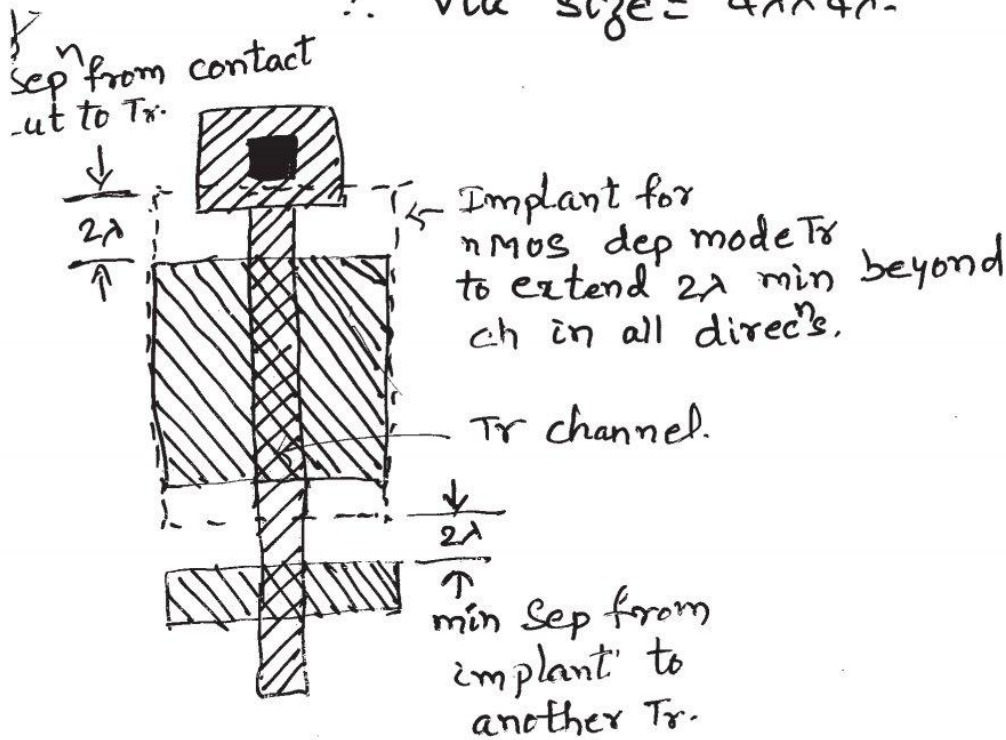 ∴ via size = 4λ×4λ.
Sepⁿ from contact
-ut to Tr.
2λ
Implant for
nMOS dep mode Tr
to extend 2λ min beyond
ch in all direcⁿs.
Tr channel.
2λ
min Sep from
implant to
another Tr.